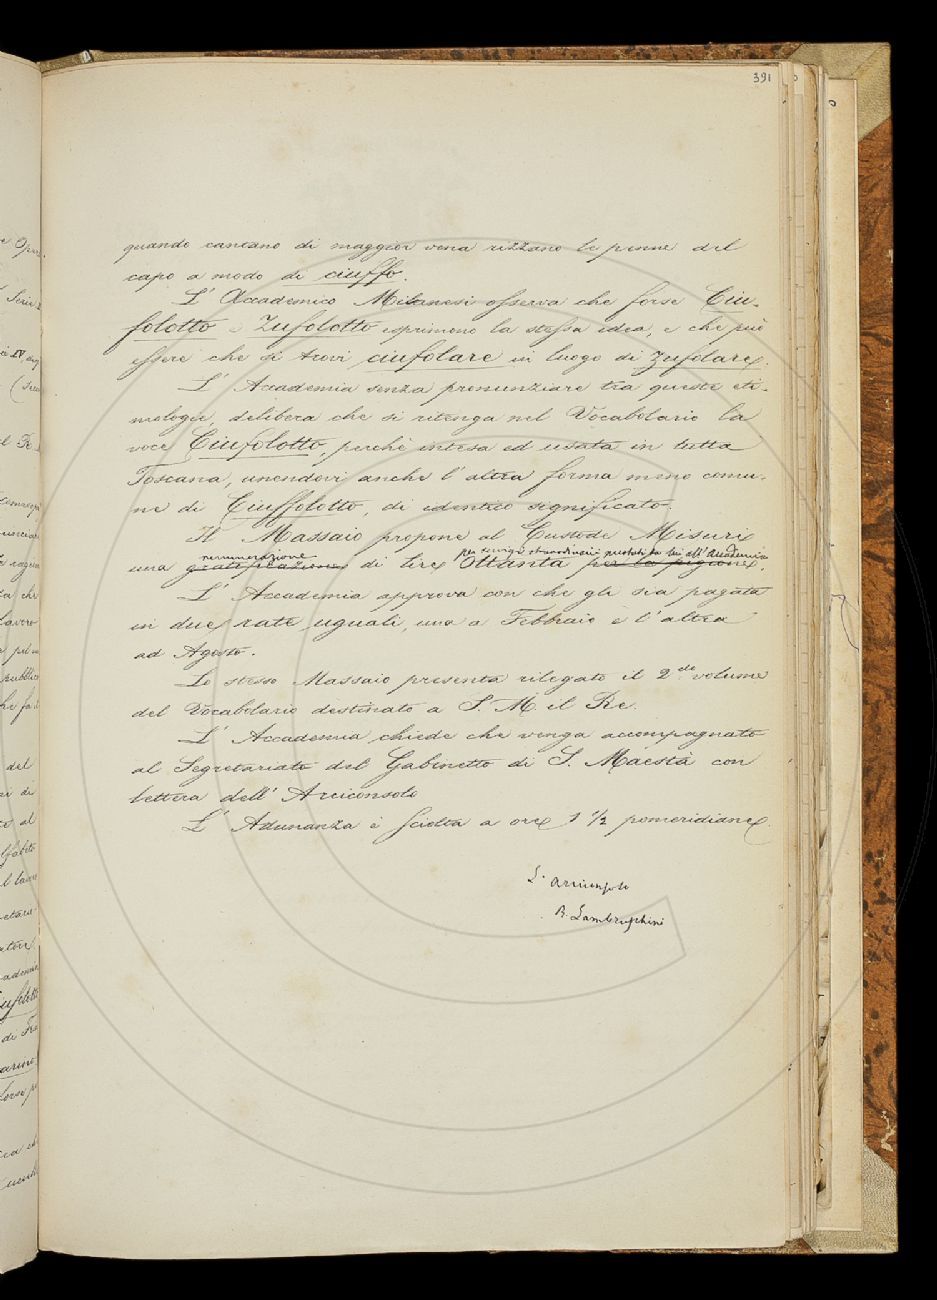 391
quando cantano di maggior vena rizzano le penne del
capo a modo di ciuffo.
L' Accademico Milanesi osserva che forse Ciu-
folotto e Zufolotto esprimono la stessa idea, e che può
essere che si trovi ciufolare in luogo di zufolare.
L' Accademia senza pronunziare tra queste eti-
mologie, delibera che si ritenga nel Vocabolario la
voce Ciufolotto, perchè intesa ed usata in tutta
Toscana, unendovi anche l' altra forma meno comu-
ne di Ciuffolotto, di identico significato.
Il Massaio propone al Custode Misuri
remunerazione per servigi straordinarii prestati da lui all' Accademia
una gratificazione di lire Ottanta per la pigione.
L' Accademia approva con che gli sia pagata
in due rate uguali, una a Febbraio e l' altra
ad Agosto.
Lo stesso Massaio presenta rilegato il 2.do volume
del Vocabolario destinato a S. M. il Re.
L' Accademia chiede che venga accompagnato
al Segretariato del Gabinetto di S. Maestà con
lettera dell' Arciconsolo
L' Adunanza è sciolta a ore 1 ½ pomeridiane.
L' Arciconsolo
R. Lambruschini